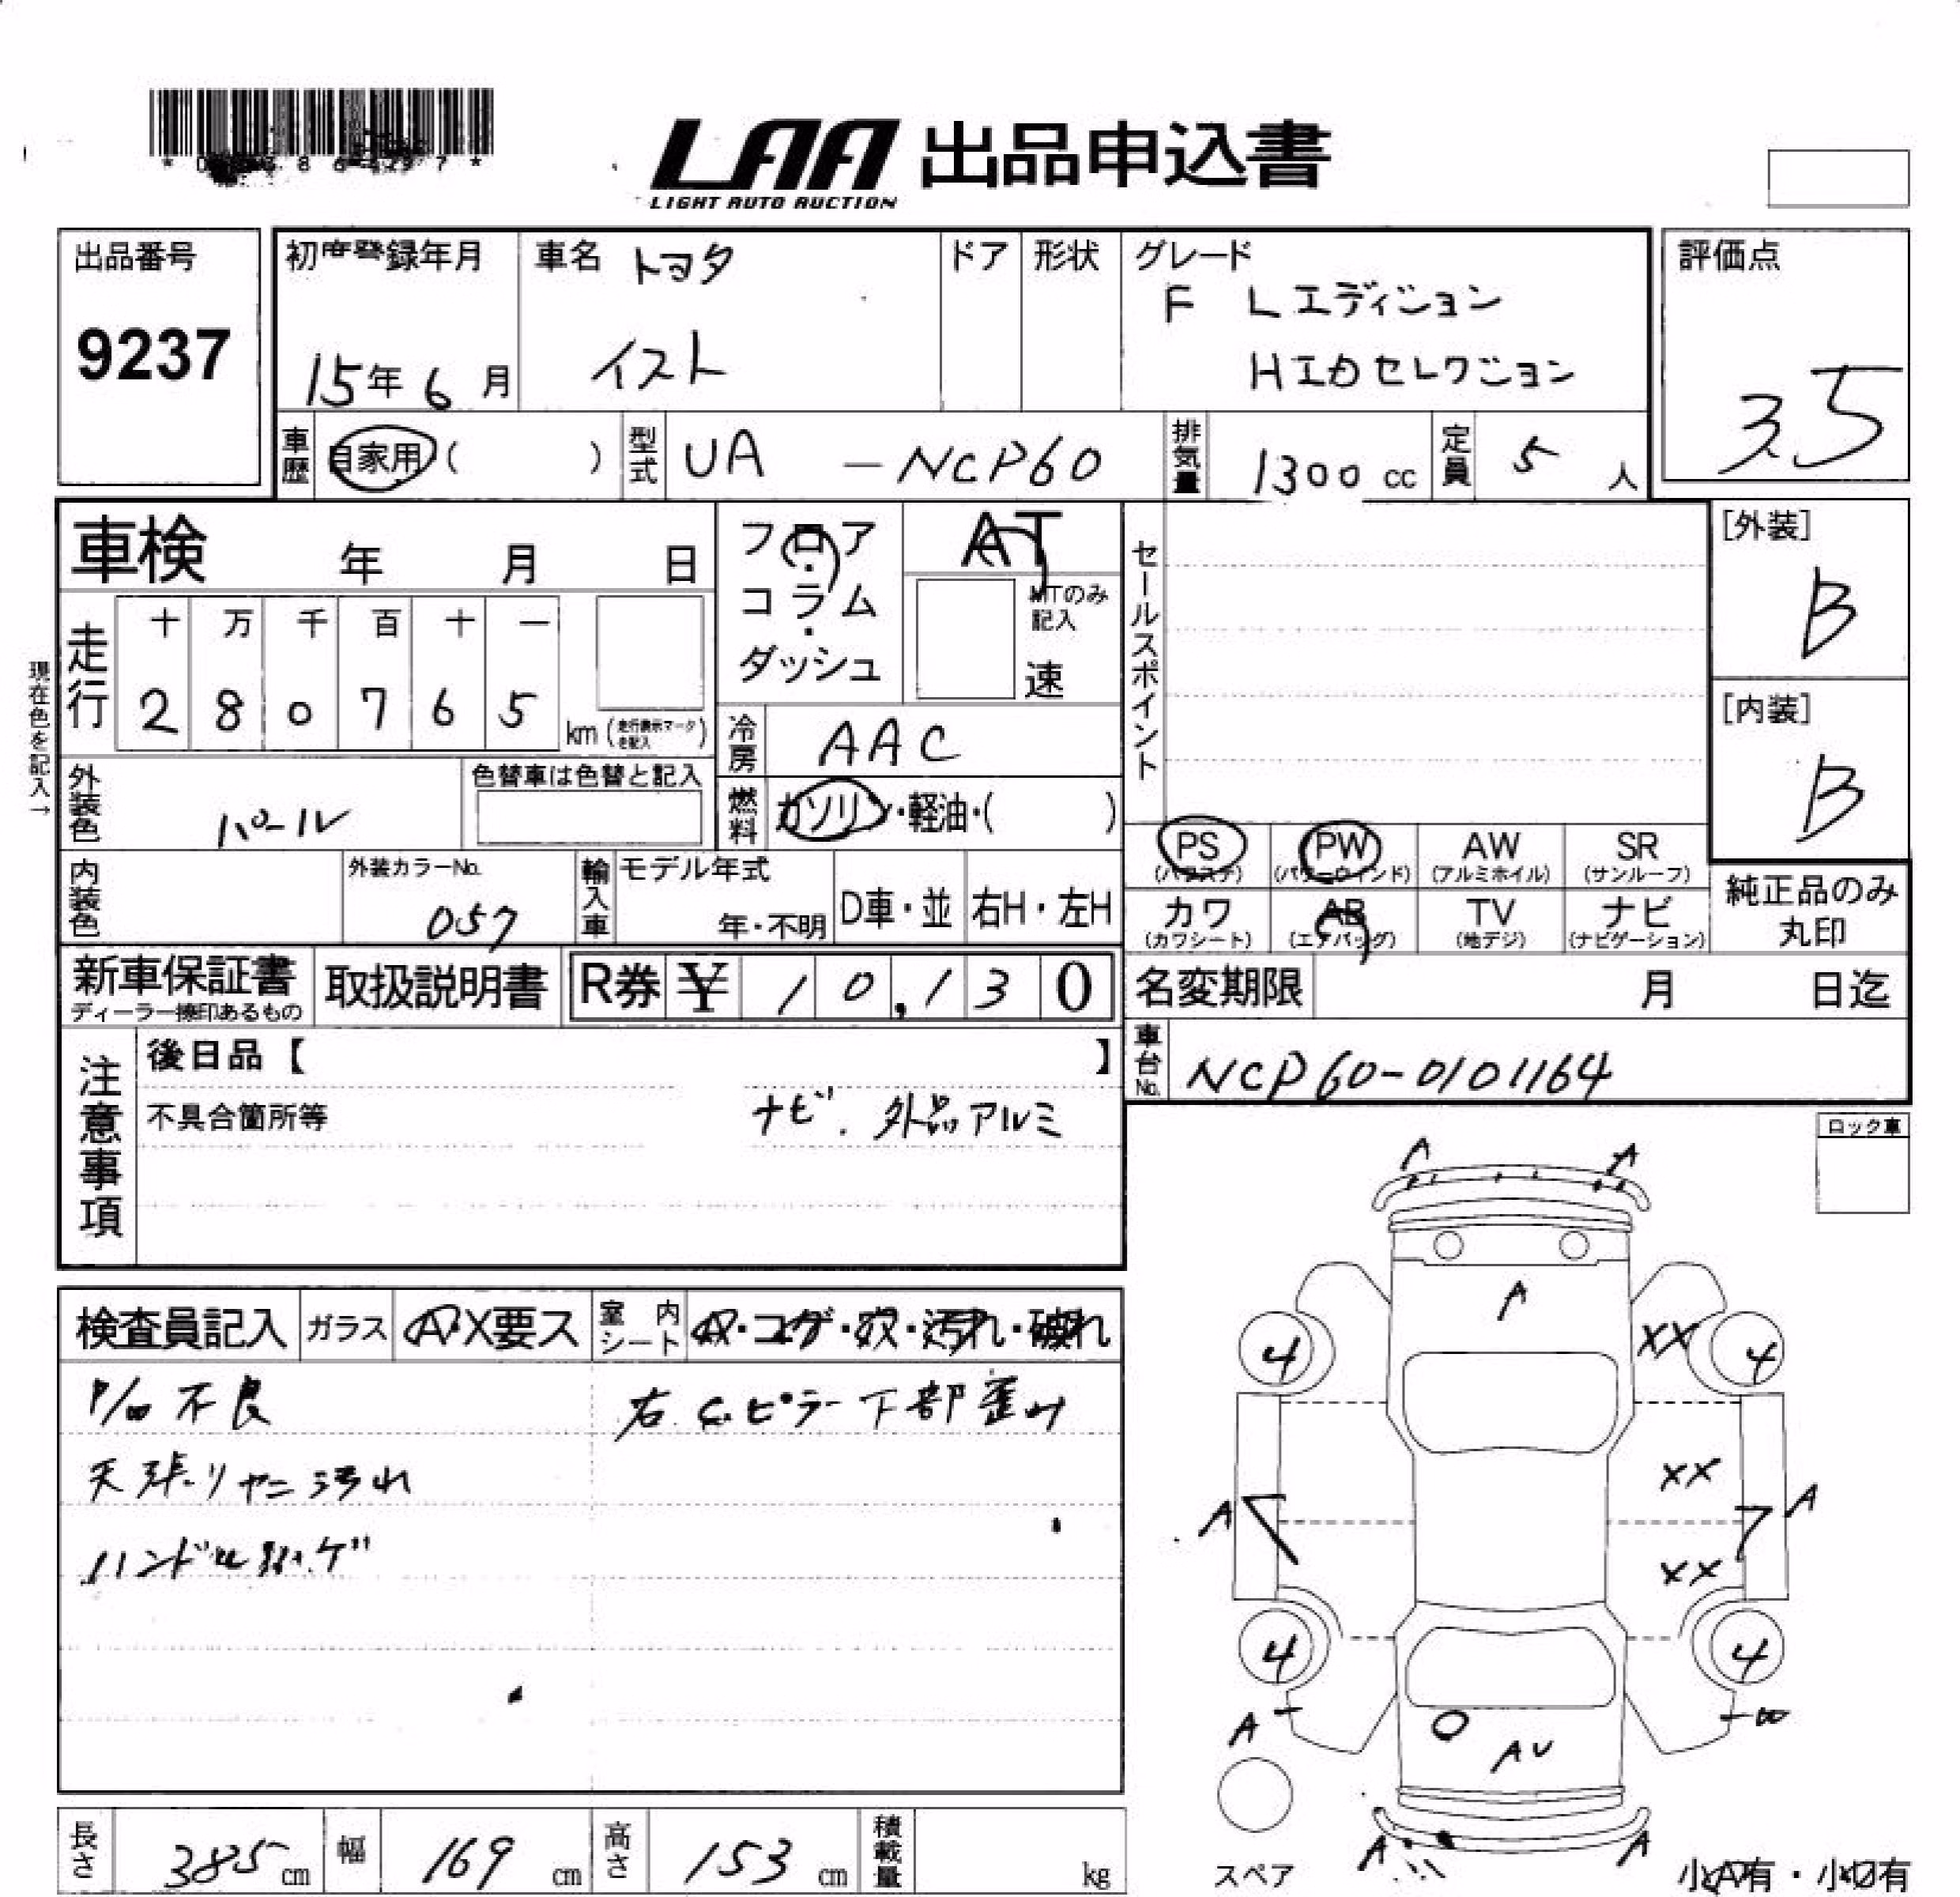 LAA 出品申込書
LIGHT AUTO AUCTION
出品番号
9237
初度登録年月
15年 6月
車名 トヨタ
イスト
ドア
形状
グレード
F Lエディション
HIDセレクション
評価点
3.5
車歴
自家用 ( )
型式
UA - NCP60
排気量
1300 cc
定員
5 人
車検 年 月 日
フロア・コラム・ダッシュ
AT
MTのみ記入
速
セールスポイント
[外装]
B
[内装]
B
現在色を記入→
走行
十 万 千 百 十 一
2 8 0 7 6 5
km (走行表示マークを記入)
冷房
AAC
外装色
パール
色替車は色替と記入
燃料
ガソリン・軽油・( )
PS (パワステ)
PW (パワーウィンド)
AW (アルミホイル)
SR (サンルーフ)
カワ (カワシート)
AB (エアバッグ)
TV (地デジ)
ナビ (ナビゲーション)
純正品のみ
丸印
内装色
外装カラーNo.
057
輸入車
モデル年式
年・不明
D車・並
右H・左H
新車保証書
ディーラー捺印あるもの
取扱説明書
R券 ¥ 10,130
名変期限 月 日迄
車台No.
NCP60-0101164
注意事項
後日品【 】
不具合箇所等
ナビ. 外品アルミ
ロック車
検査員記入
ガラス
A・X要ス
室内シート
A・コゲ・穴・汚れ・破れ
P/W不良
右.C.ピラー下部歪み
天張りヤニ汚れ
ハンドルハゲ
A A
A
4 XX 4
XX
A A
XX
4 4
A
AU
A A
スペア
小A有・小U有
長さ 385 cm
幅 169 cm
高さ 153 cm
積載量 kg